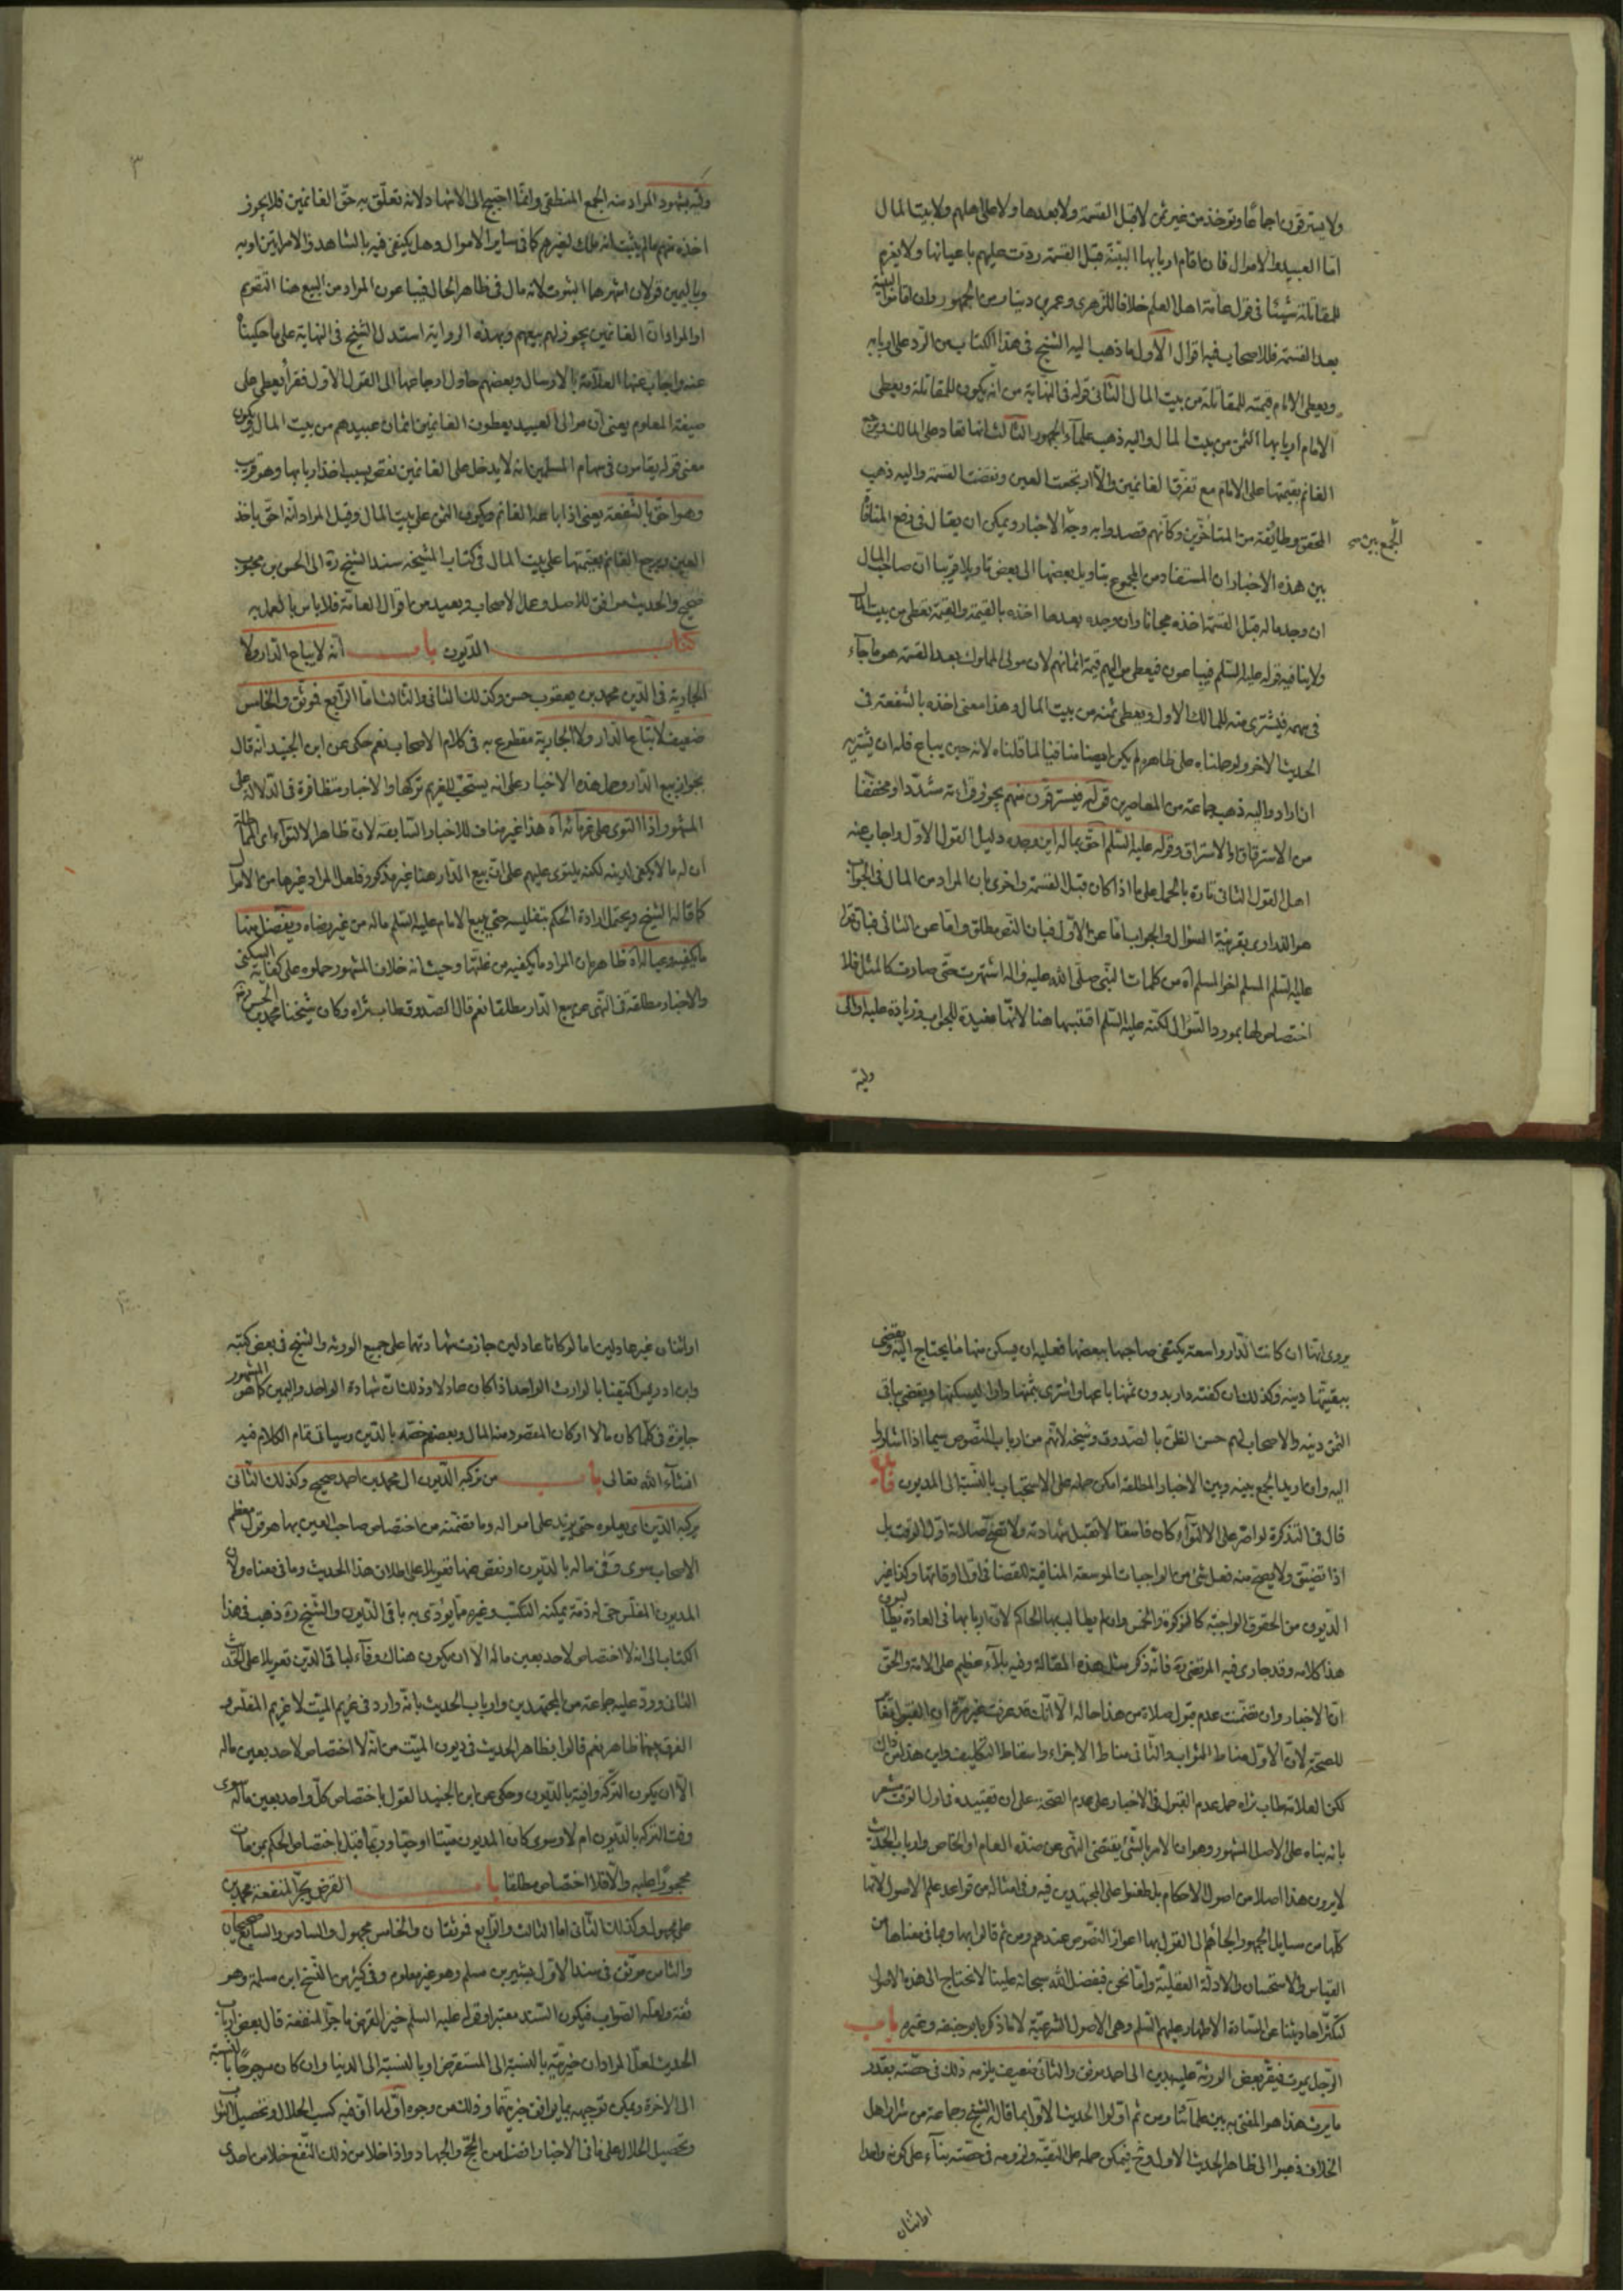 ولا يسترقون اجماعًا ويؤخذ من غير ثمن لا قبل القسمة ولا بعدها ولا على اهلهم ولا بيت المال
امّا العبيد والاموال فان اقام اربابها البيّنة قبل القسمة ردّت عليهم باعيانها ولا يغرم
للمقاتلة شيئا في قول عامة اهل العلم خلافا للزهري وعمرو بن دينار من الجمهور وان اقاموا البينة
بعد القسمة فللاصحاب فيه اقوال الأول ما ذهب اليه الشيخ في هذا الكتاب من الرد على اربابه
ويعطى الامام قيمته للمقاتلة من بيت المال الثاني قوله في النهاية من انه يكون للمقاتلة ويعطى
الامام اربابها الثمن من بيت المال واليه ذهب علماء الجمهور الثالث انها تعاد على المالك ويرجع
الغانم بقيمتها على الامام مع تفرق الغانمين والّا ارتجعت العين ونقضت القسمة واليه ذهب
المحقق وطائفة من المتأخرين وكأنهم قصدوا به وجه الاخبار ويمكن ان يقال في دفع المنافاة
الجمع بين
بين هذه الأخبار ان المستفاد من المجموع بتاويل بعضها الى بعض تاويلا قريبا ان صاحب المال
ان وجد ماله قبل القسمة اخذه مجانا وان وجده بعدها اخذه بالقيمة والقيمة تعطى من بيت المال
ولا ينافيه قوله عليه السلم فيباعون فيعطى مواليهم قيمة اثمانهم لان مولى المملوك بعد القسمة هو ما جاء
في سهمه فيشترى منه للمالك الاول ويعطى ثمنه من بيت المال وهذا معنى اخذه بالشفعة في
الحديث الاخر ولو حملناه على ظاهره لم يكن ايضا منافيا لما قلناه لانه حين يباع فله ان يشتريه
ان اراد واليه ذهب جماعة من المعاصرين قوله فيسترقون منهم يجوز قراءته مشدّدا ومخففا
من الاسترقاق والاستراق وقوله عليه السلم احق بماله اين وجده دليل القول الاول واجاب عنه
اهل القول الثاني تارة بالحمل على ما اذا كان قبل القسمة واخرى بان المراد من المال في الجواب
هو الذراري بقرينة السؤال والجواب امّا عن الاول فبان النص مطلق وامّا عن الثاني فبان قوله
عليه السلم المسلم اخو المسلم آه من كلمات النبي صلى الله عليه واله اشتهرت حتى صارت كالمثل فلا
اختصاص لها بمورد السؤال لكنّه عليه السلم اقتبسها هنا لانّها مفيدة للجواب وزيادة عليه اولى
وليه
٣
ولته بشهود المراد منه الجمع المنطقي وانمّا احتيج الى الاشهاد لانه تعلّق به حقّ الغانمين فلا يجوز
اخذه منهم ما لم يثبت انه ملك لغيرهم كما في ساير الاموال وهل يكتفى فيه بالشاهد والامراتين او به
وباليمين قولان اشهرهما الثبوت لانه مال في ظاهر الحال فيباعون المراد من البيع هنا التقويم
او المراد ان الغانمين يجوز لهم بيعهم وبهذه الرواية استدل الشيخ في النهاية على ما حكيناه
عنه واجاب عنها العلّامة بالارسال وبعضهم حاول ارجاعها الى القول الاول فقرأ يعطى على
صيغة المعلوم يعنى أن موالى العبيد يعطون الغانمين اثمان عبيدهم من بيت المال ويكون
معنى قوله يقامون في سهام المسلمين انه لا يدخل على الغانمين نقص بسبب اخذ اربابها وهو قريب
وهو احق بالشفعة يعنى اذا باعه الغانم ويكون الثمن على بيت المال وقيل المراد انّه احق باخذ
العين ويرجع الغانم بقيمتها على بيت المال في كتاب المشيخة سند الشيخ ره الى الحسن بن محبوب
صحيح والحديث موافق للاصل وعمل الاصحاب وبعيد من اقوال العامة فلا باس بالعمل به
كتاب الديون باب انه لا يباع الدار ولا
الجارية في الدين محمد بن يعقوب حسن وكذلك الثاني والثالث امّا الرابع فموثق والخامس
ضعيف لا تباع الدار ولا الجارية مقطوع به في كلام الاصحاب نعم حكى عن ابن الجنيد انه قال
بجواز بيع الدار وحمل هذه الاخبار على انه يستحب للغريم تركها والاخبار متظافرة في الدلالة على
المشهور واذا التوى على غرمائه آه هذا غير مناف للاخبار السابقة لان ظاهر الالتواء اى المماطلة
ان له ما لا يكفى لدينه لكنه يلتوى عليهم على ان بيع الدار هنا غير مذكور فلعل المراد غيرها من الاموال
كما قاله الشيخ ويحتمل ارادة الحكم بتفليسه حتى يبيع الامام عليه السلم ماله من غير رضاه ويفضل منها
ما يكفيه وعياله آه ظاهره ان المراد ما يكفيه من غلتها وحيث انه خلاف المشهور حملوه على كفاية السكنى
والاخبار مطلقة في النهى عن بيع الدار مطلقا نعم قال الصدوق طاب ثراه وكان شيخنا محمد بن الحسن رض
يروى انها ان كانت الدار واسعة يكتفى صاحبها ببعضها فعليه ان يسكن منها ما يحتاج اليه ويقضى
ببقيتها دينه وكذلك ان كفته دار بدون ثمنها باعها واشترى بثمنها دارا ليسكنها ويقضى بباقى
الثمن دينه والاصحاب لهم حسن الظن بالصدوق وشيخه لانهم من ارباب النصوص سيما اذا اشاروا
اليه وان اريد الجمع بينه وبين الاخبار المطلقة امكن حمله على الاستحباب بالنسبة الى المديون
قال في التذكرة لو اصرّ على الالتواء كان فاسقا لا تقبل شهادته ولا تصح صلاته اول الوقت بل
اذا تضيّق ولا يصح منه فعل شئ من الواجبات الموسعة المنافية للقضاء في اول اوقاتها وكذا غير
الديون من الحقوق الواجبة كالزكوة والخمس وان لم يطالب بها الحاكم لان اربابها في العادة يطالبون
هذا كلامه وقد جارى فيه المرتضى ره فانّه ذكر مثل هذه المقالة وفيه بلاء عظيم على الامة والحق
ان الاخبار وان تضمنت عدم قبول صلاة من هذا حاله الّا انّك قد عرفت غير مرّة ان القبول مغاير
للصحة لان الاول مناط الثواب والثاني مناط الاجزاء واسقاط التكليف واين هذا من ذاك
لكن العلامة طاب ثراه حمل عدم القبول في الاخبار على عدم الصحة على ان تقييده في اول الوقت مشعر
بانه بناه على الاصل المشهور وهو ان الامر بالشئ يقتضى النهى عن ضده العام او الخاص وارباب الحديث
لا يرون هذا اصلا من اصول الاحكام بل طعنوا على المجتهدين فيه وفى امثاله من قواعد علم الاصول لانها
كلها من مسايل الجمهور الجأهم الى القول بها اعواز النصوص عندهم ومن ثم قالوا بها وبما في معناها من
القياس والاستحسان والادلّة العقليّة وامّا نحن فبفضل الله سبحانه علينا لا نحتاج الى هذه الاصول
لتكثّر احاديثنا عن السادة الاطهار عليهم السلم وهى الاصول الشرعيّة لا ما ذكره ابو حنيفه وغيره باب
الرجل يموت فيقرّ بعض الورثة عليه بدين الى احمد موثق والثاني ضعيف يلزمه ذلك في حصّته بقدر
ما يرث هذا هو المفتى به بين علمائنا ومن ثم اوّلوا الحديث الاول بما قاله الشيخ وجماعة من اهل
الخلاف ذهبوا الى ظاهر الحديث الاول وح فيمكن حمله على التقيّة ولزومه في حصّته بناء على كونه واحدا
او اثنان
او اثنان غير عدلين اما لو كانا عادلين جازت شهادتهما على جميع الورثة والشيخ في بعض كتبه
وابن ادريس اكتفينا بالوارث الواحد اذا كان عادلا وذلك ان شهادة الواحد واليمين كما هو المشهور
جايزة في كلما كان مالا او كان المقصود منه المال وبعضهم خصّه بالدين وسياتى تمام الكلام فيه
انشآء الله تعالى باب من تركبه الديون الى محمد بن احمد صحيح وكذلك الثاني
يركبه الدين اى يعلوه حتى يزيد على امواله وما تضمّنه من اختصاص صاحب العين بها هو قول معظم
الاصحاب سوى وفى ماله بالديون او نقص عنها تعويلا على اطلاق هذا الحديث وما في معناه ولان
المديون المفلّس حى له ذمّة يمكنه التكسّب وغيره ممّا يؤدى به باقى الديون والشيخ ره ذهب في هذا
الكتاب الى انه لا اختصاص لاحد بعين ماله الا ان يكون هناك وفآء لباقى الدين تعويلا على الحديث
الثاني وردّ عليه جماعة من المجتهدين وارباب الحديث بانّه وارد في غريم الميّت لا غريم المفلّس و
الفرق بينهما ظاهر نعم قالوا بظاهر الحديث في ديون الميّت من انّه لا اختصاص لاحد بعين ماله
الّا ان يكون التركة وافية بالديون وحكى عن ابن الجنيد القول باختصاص كلّ واحد بعين ماله سوى
وفت التركة بالديون ام لا وسوى كان المديون ميّتا او حيّا وربما قيل باختصاص الحكم بمن مات
محجورًا عليه والّا فلا اختصاص مطلقا باب القرض يجرّ المنفعة محمد بن
على مجهول وكذلك الثاني امّا الثالث والرابع فموثقان والخامس مجهول والسادس والسابع صحيحان
والثامن موثق في سند الاول بشير بن مسلم وهو غير معلوم وفى كثير من النسخ ابن سلمة وهو
ثقة ولعلّه الصواب فيكون السند معتبرا وقوله عليه السلم خير القرض ما جرّ المنفعة قال بعض ارباب
الحديث لعلّ المراد ان خيريّته بالنسبة الى المستقرض او بالنسبة الى الدنيا وان كان مرجوحًا بالنسبة
الى الاخرة ويمكن توجيهه بما يوافق خيريّتها وذلك من وجوه اوّلها انّ فيه كسب الحلال وتحصيل الثواب
وتحصيل الحلال على ما في الاخبار افضل من الحجّ والجهاد واذا خلا من ذلك النفع خلا من احدى